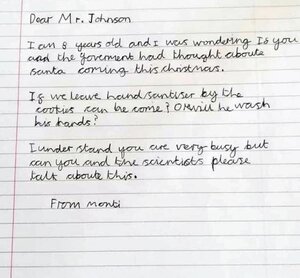 Dear Mr. Johnson
I am 8 years old and I was wondering Is you
and the goverment had thought aboute
santa coming this christmas.
If we leave hand sanitiser by the
cookies can be come? Or will he wash
his hands?
I under stand you are very busy but
can you and the scientists please
talk aboute this.
From monti